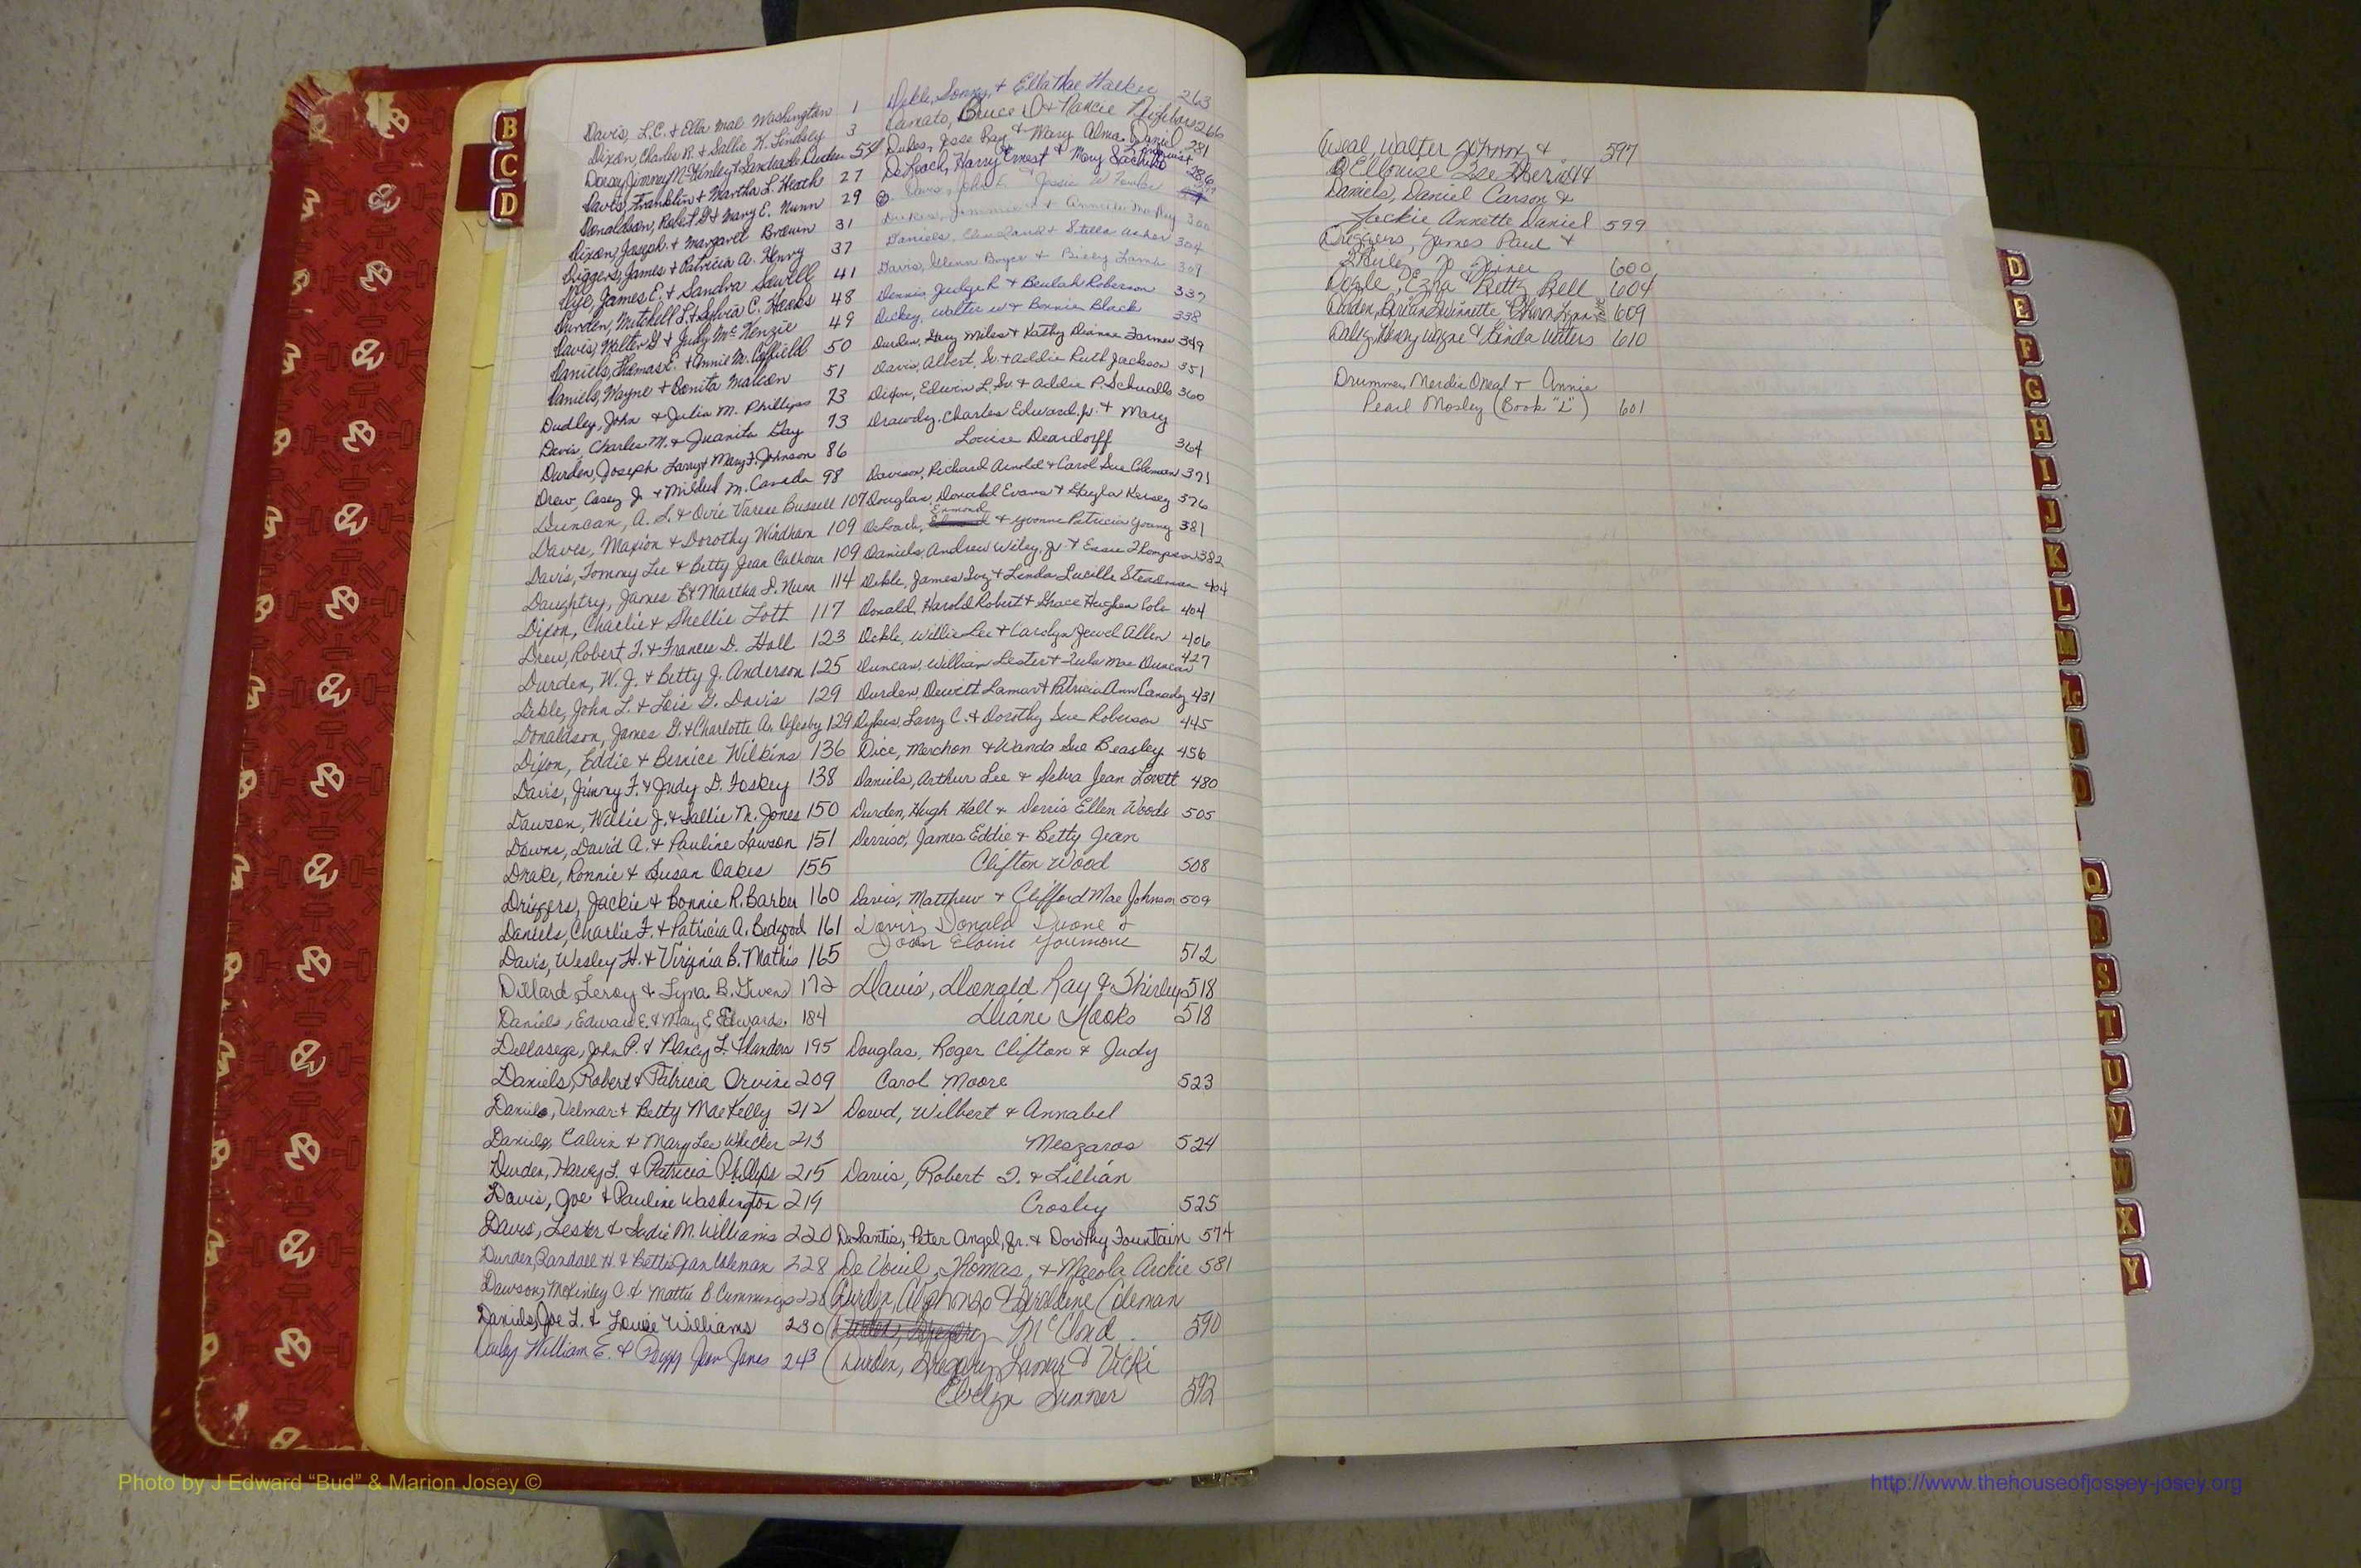 B
C
D
Davis, L.C. & Ella Mae Washington 1
Dixon, Charles R. & Sallie K. Lindsey 3
Dorsey, Jimmy McKinley &
Davis, Franklin & Martha L. Heath 27
Donaldson, Robert & Mary E. Nunn 29
Dixon, Joseph & Margaret Brown 31
Diggers, James & Patricia A. Henry 37
Dye, James E. & Sandra Sowell 41
Durden, Mitchell L. & Sylvia C. Hooks 48
Davis, Walter G & Judy McKenzie 49
Daniels, Thomas E. & Annie M. Coffield 50
Daniels, Wayne & Bonita 51
Dudley, John & Julia M. Phillips 73
Davis, Charles M. & Juanita Gay 73
Durden, Joseph Larry & Mary F. Johnson 86
Drew, Casey J. & Mildred M. Canada 98
Duncan, A. L. & Ovie Varese Bussell 107
Davis, Maxion & Dorothy Windham 109
Davis, Tommy Lee & Betty Jean Calhoun 109
Daughtry, James E & Martha F. Nunn 114
Dixon, Charlie & Shellie Lott 117
Drew, Robert F. & Frances D. Hall 123
Durden, W. J. & Betty J. Anderson 125
Dekle, John L. & Lois G. Davis 129
Donaldson, James G. & Charlotte A. Oglesby 129
Dixon, Eddie & Bernice Wilkins 136
Davis, Jimmy F. & Judy D. Foskey 138
Dawson, Willie J. & Sallie M. Jones 150
Downs, David A. & Pauline Lawson 151
Drake, Ronnie & Susan Oakes 155
Driggers, Jackie & Bonnie R. Barber 160
Daniels, Charlie F. & Patricia A. Bedgood 161
Davis, Wesley H. & Virginia B. Mathis 165
Dillard, Leroy & Lyna B. Givens 172
Daniels, Edward E. & Mary E. Edwards 184
Dellasega, John P. & Nancy L. Flanders 195
Daniels, Robert & Patricia Orvine 209
Daniels, Velmar & Betty Mae Kelly 212
Daniels, Calvin & Mary Lee Whicker 213
Durden, Harvey L. & Patricia Phillips 215
Davis, Joe & Pauline Washington 219
Davis, Lester & Sadie M. Williams 220
Durden, Randall H. & Bettie Jean Coleman 228
Dawson, McKinley C. & Mattie B. Cummings 228
Daniels, Joe L. & Louise Williams 230
William E. & Peggy Jean Jones 243
Dekle, Sonny, & Ella Mae Harker 263
Donato, Bruce D & Nancie 266
Dukes, Jesse Ray & Mary Alma Daniel 281
DeLoach, Harry Ernest & Mary 286
Davis, John E. & Jessie W Fowler
Dukes, Jimmie & Annette McKay 300
Daniels, Cleveland & Stella Asher 304
Davis, Glenn Boyce & Billy Lamb 309
Dennis, Judge R & Beulah Roberson 337
Dickey, Walter W & Bonnie Black 338
Durden, Gary Miles & Kathy Dianne Farmer 349
Davis, Albert, Sr. & Addie Ruth Jackson 351
Dixon, Edwin L. Sr. & Addie P. Schwalls 360
Drawdy, Charles Edward, Jr. & Mary
Louise Deardorff 364
Davison, Richard Arnold & Carol Sue Coleman 371
Douglas, Donald Evans & Gayla Kersey 376
DeLoach, Edmond & Yvonne Patricia Young 381
Daniels, Andrew Wiley, Jr. & Essie Thompson 382
Dekle, James Ivy & Linda Lucille Steadman 404
Donald, Harold Robert & Grace Hughen Cole 404
Dekle, Willie Lee & Carolyn Jewel Allen 406
Duncan, William Lester & Lula Mae Duncan 427
Durden, Dewitt Lamar & Patricia Ann Canady 431
Dykes, Larry C. & Dorothy Sue Roberson 445
Dice, Merchon & Wanda Sue Beasley 456
Daniels, Arthur Lee & Debra Jean Lovett 480
Durden, Hugh Hall & Dorris Ellen Woods 505
Derriso, James Eddie & Betty Jean
Clifton Wood 508
Davis, Matthew & Clifford Mae Johnson 509
Davis, Donald Duone &
Joan Elaine Youmans 512
Davis, Donald Ray & Shirley 518
Diane Hooks 518
Douglas, Roger Clifton & Judy
Carol Moore 523
Dowd, Wilbert & Annabel
Meszaros 524
Davis, Robert I. & Lillian
Crosby 525
DeSantis, Peter Angel, Jr. & Dorothy Fountain 574
De Vouil, Thomas, & Macola Archie 581
Durden, Alphonzo & Geraldine Coleman
McCloud 590
Durden, Gregory Lamar & Vicki
Evelyn Sumner 592
Deal, Walter Johnny & 597
Ellouise
Daniels, Daniel Carson &
Jackie Annette Daniel 599
Driggers, James Paul &
Shirley Jo Joiner 600
Dekle, Ezra & Betty Bell 604
Durden, Brittian Swinnette, & 609
Henry Wayne & Linda Waters 610
Drummer, Merdis Oneal & Annie
Pearl Mosley (Book "L") 601
D
E
F
G
H
I
J
K
L
M
Mc
N
O
Q
R
S
T
U
V
W
X
Y
Photo by J Edward "Bud" & Marion Josey ©
http://www.thehouseofjossey-josey.org